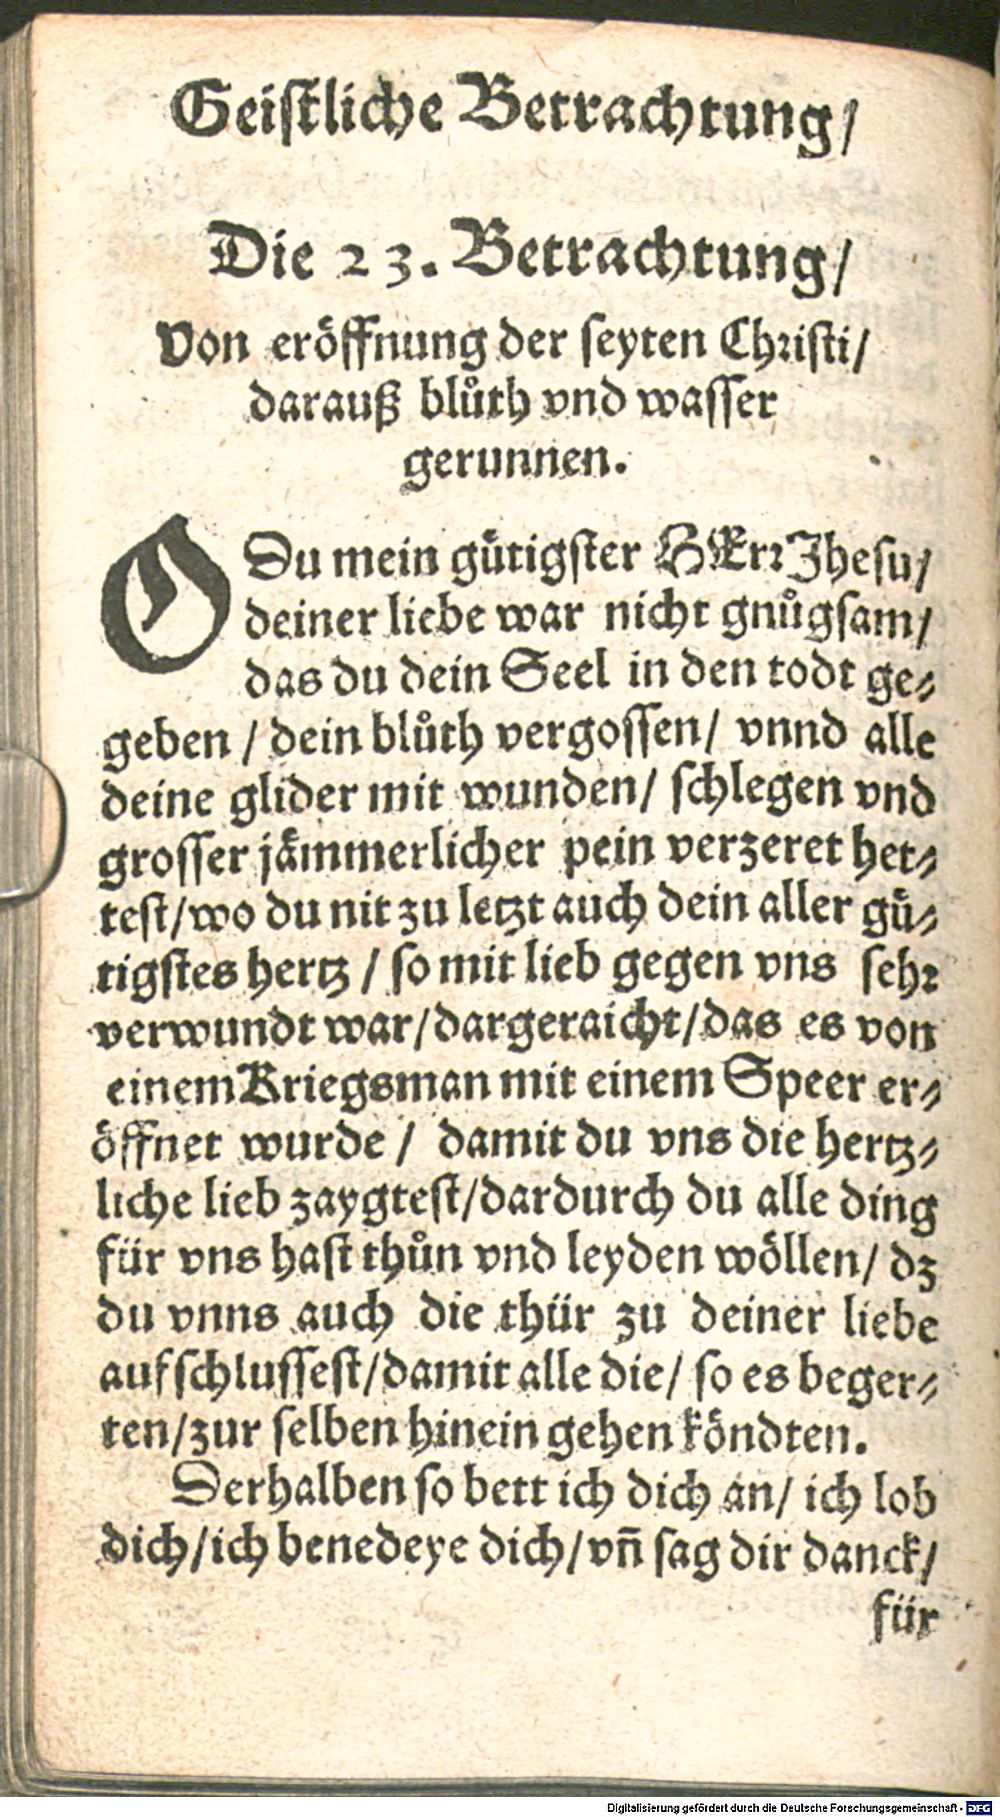 Geiſtliche Betrachtung/
Die 23. Betrachtung/
Von eröffnung der ſeyten Chriſti/
darauß blůth vnd waſſer
gerunnen.
O Du mein gütigſter HERr Jheſu/
deiner liebe war nicht gnůgſam/
das du dein Seel in den todt ge⸗
geben / dein blůth vergoſſen/ vnnd alle
deine glider mit wunden/ ſchlegen vnd
groſſer jämmerlicher pein verzeret het⸗
teſt/wo du nit zu letzt auch dein aller gü⸗
tigſtes hertz / ſo mit lieb gegen vns ſehr
verwundt war/dargeraicht/das es von
einem Kriegsman mit einem Speer er⸗
öffnet wurde / damit du vns die hertz⸗
liche lieb zaygteſt/dardurch du alle ding
für vns haſt thůn vnd leyden wöllen/ dz
du vnns auch die thür zu deiner liebe
aufſchluſſeſt/damit alle die/ ſo es beger⸗
ten/zur ſelben hinein gehen köndten.
Derhalben ſo bett ich dich an/ ich lob
dich/ich benedeye dich/vñ ſag dir danck/
für
Digitalisierung gefördert durch die Deutsche Forschungsgemeinschaft - DFG